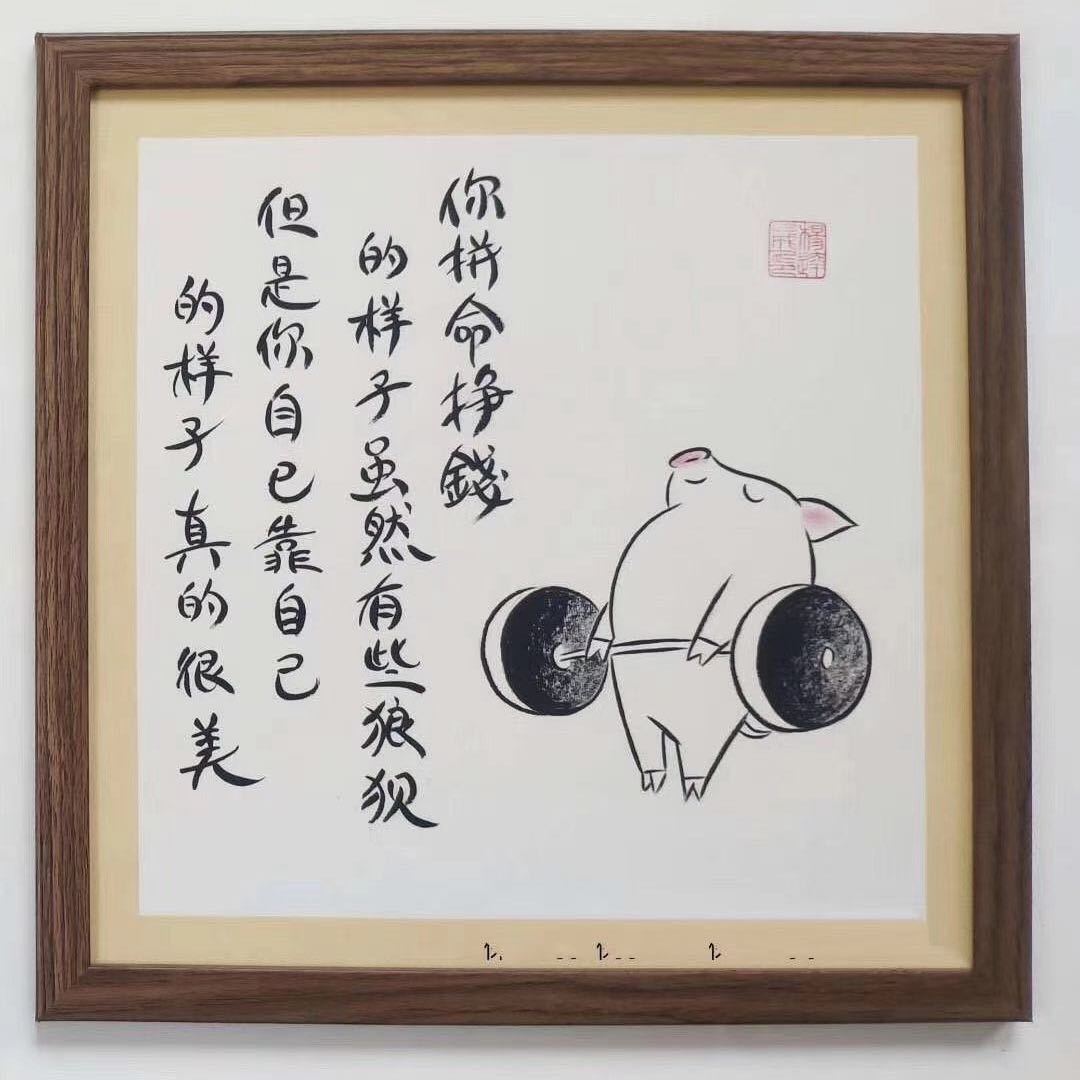 你拼命挣錢
的样子虽然有些狼狈
但是你自己靠自己
的样子真的很美